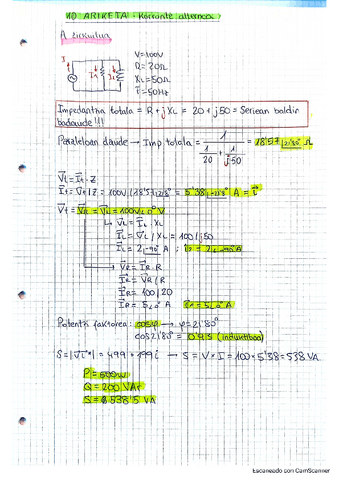 10 ARIKETA: Korronte alternoa
A zirkuitua
V=100V
R= 20Ω
XL= 50Ω
f= 50Hz
Impedantzia totala = R + jXL = 20 + j50 = Seriean baldin
badaude!!!
Paraleloan daude → Imp totala = 1 / (1/20 + 1/j50) = 18'57 ∠21'8° Ω
Vt = It · Z
It = Vt / Z = 100V / 18'57 ∠21'8° = 5'38 ∠-21'8° A = I
Vt = VR = VL = 100 ∠0° V
VL = IL · XL
IL = VL / XL = 100 / j50
IL = 2 ∠-90° A ; I2 = 2 ∠-90° A
VR = IR · R
IR = VR / R
IR = 100 / 20
IR = 5 ∠0° A I1 = 5 ∠0° A
Potentzi faktorea: cosφ → φ=21'80°
cos21'80° = 0'93 (induktiboa)
S = |V·I*| = 499 + 199i → S = V × I = 100 × 5'38 = 538 VA
P = 500W
Q = 200 VAr
S = 538'5 VA
Escaneado con CamScanner